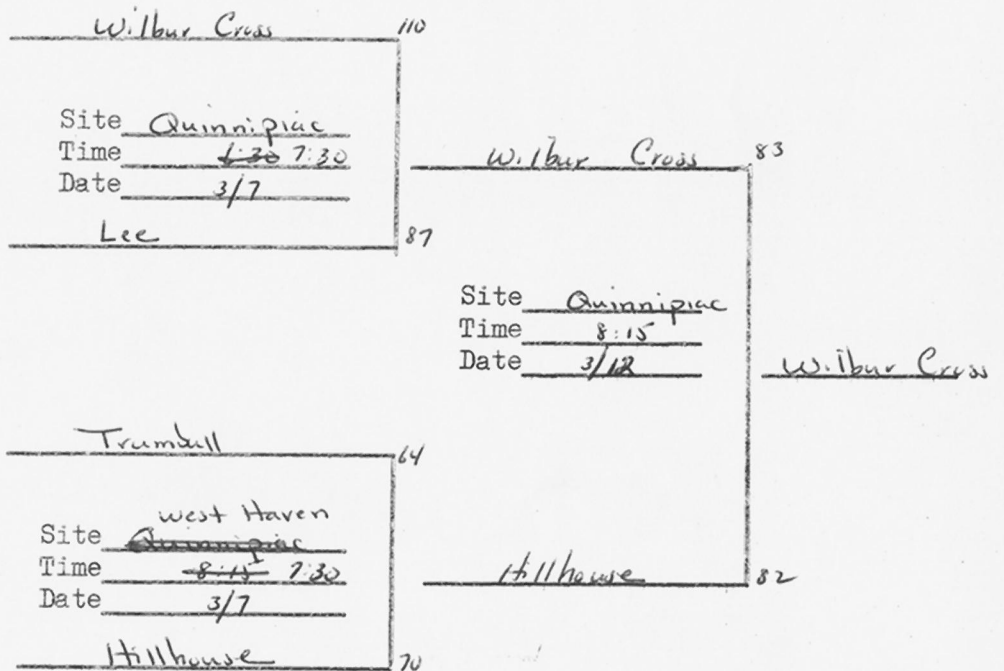 Wilbur Cross 110
Site Quinnipiac
Time 6:30 7:30
Date 3/7
Lee 87
Wilbur Cross 83
Site Quinnipiac
Time 8:15
Date 3/12
Wilbur Cross
Trumbull 64
West Haven
Site Quinnipiac
Time 8:15 7:30
Date 3/7
Hillhouse 70
Hillhouse 82